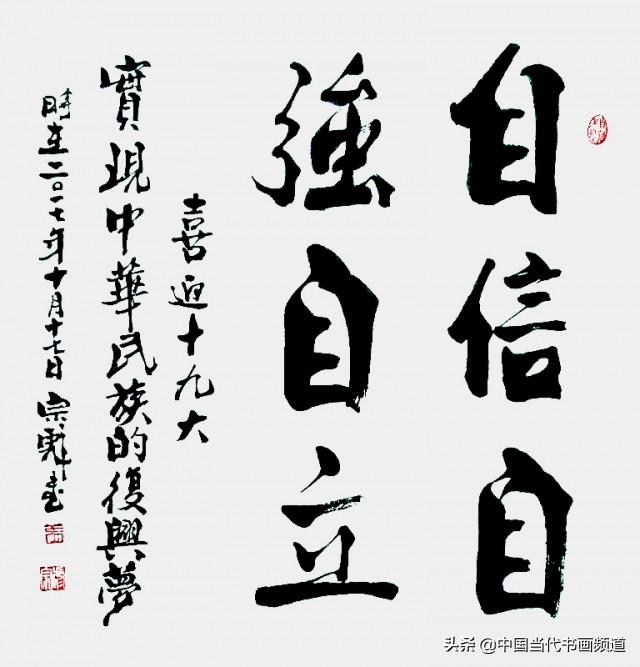 自信自
強自立
喜迎十九大
實現中華民族的復興夢
時在二〇一七年十月十七日 宗書
头条 @中国当代书画频道